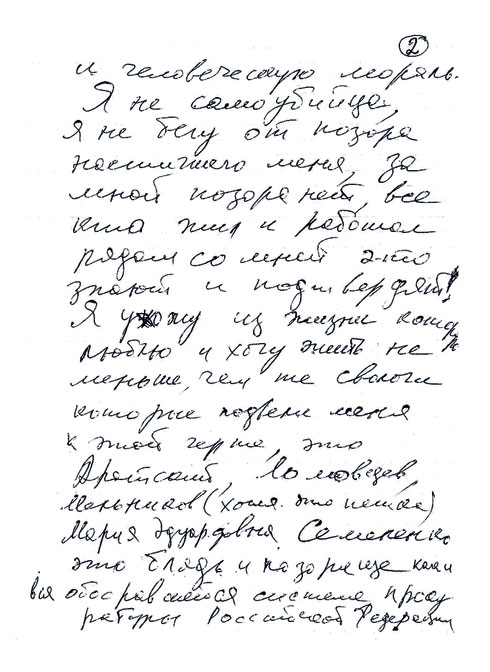 2
и человеческую мораль.
Я не самоубийца,
я не бегу от позора
настигшего меня, за
мной позора нет, все
кто жил и работал
рядом со мной это
знают и подтвердят!
Я ухожу из жизни которую
люблю и хочу жить не
меньше, чем те сволочи
которые подвели меня
к этой черте, это
Ломоведев,
Мельников (хотя это пешка)
Мария Эдуардовна Семененко
это блядь и позорище как и
вся обосравшейся системе проку
ратуры Российской Федерации